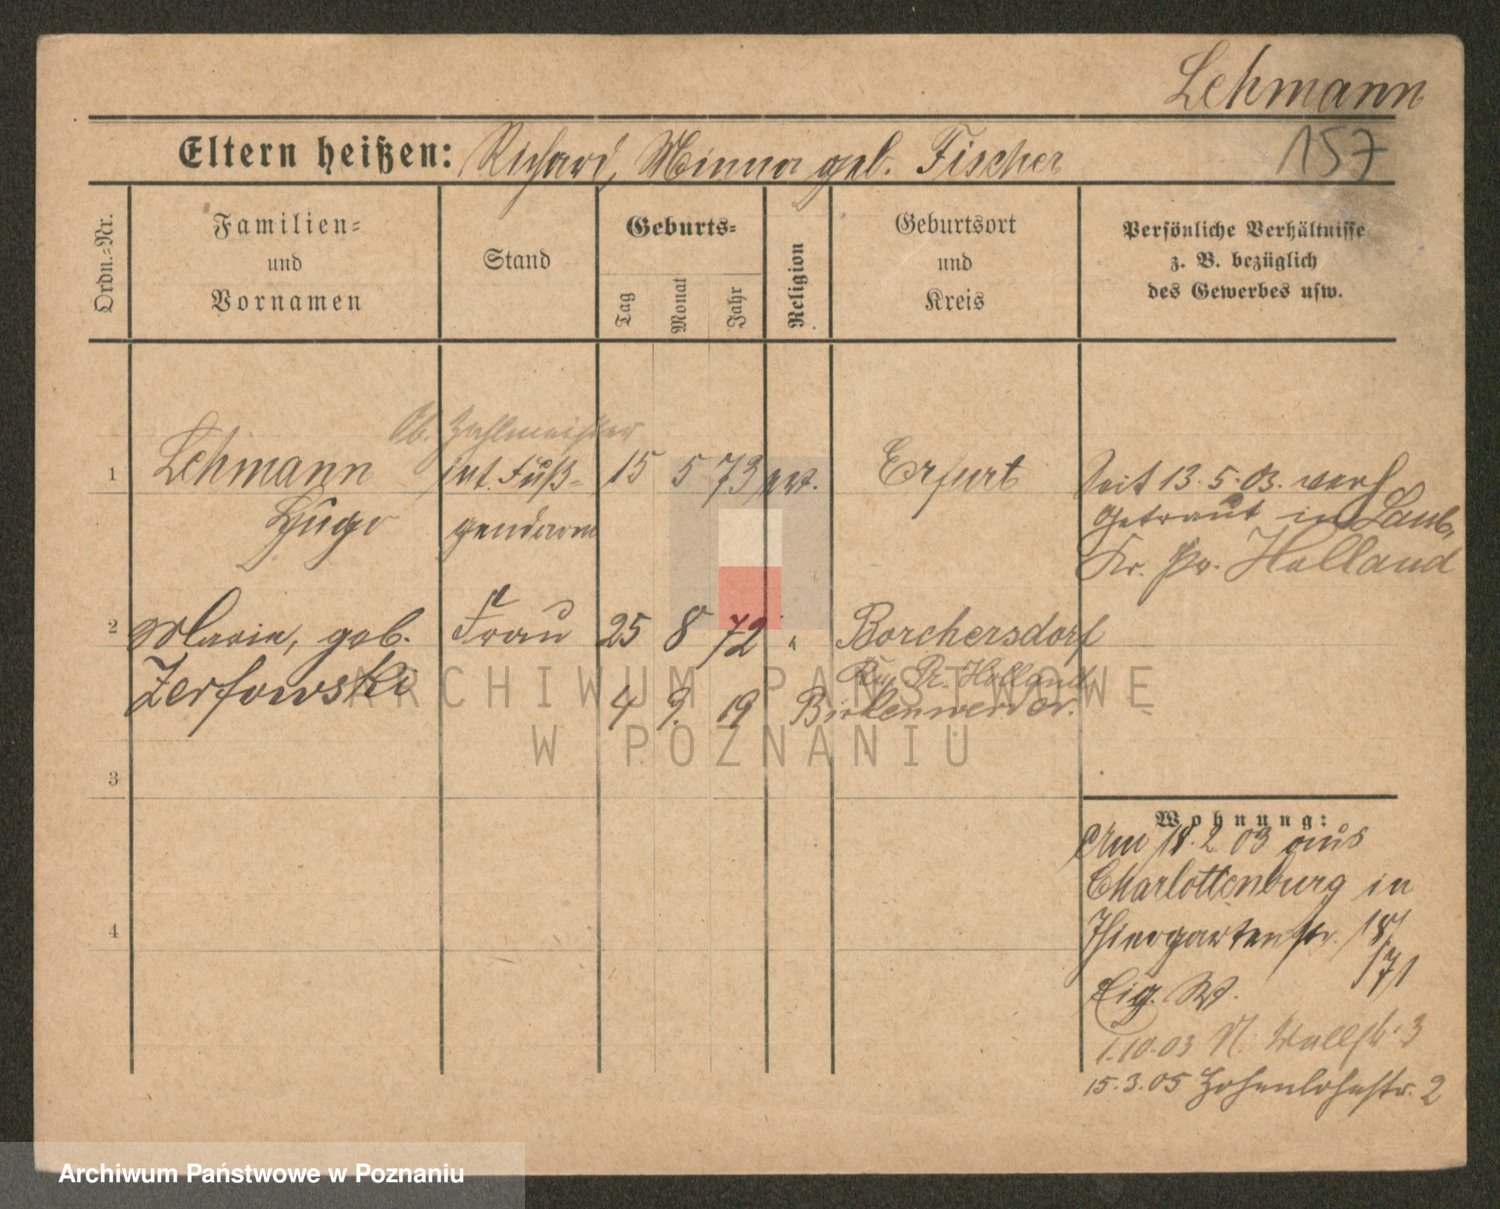 Lehmann
157
Eltern heißen: Richard, Minna geb. Fischer
Ordn.=Nr.
Familien=
und
Vornamen
Stand
Geburts=
Tag
Monat
Jahr
Religion
Geburtsort
und
Kreis
Persönliche Verhältnisse
z. B. bezüglich
des Gewerbes usw.
Ob. Zahlmeister
1 Lehmann int. Fuß- 15 5 73 Erfurt Seit 13.5.03. verh
Hugo gendarm Getraut in Laub,
Kr. Pr. Holland
2 Marie, geb. Frau 25 8 72 " Borchersdorf
Zerfowski Pr. Holland
4 9. 19 Birkenwerder.
3
4
Wohnung:
Am 18.2 03 aus
Charlottenburg in
Thiergartenstr. 18/
171
Eig. W.
1.10.03 N. Wallstr. 3
15.3.05 Hohenlohestr. 2
ARCHIWUM PAŃSTWOWE
W POZNANIU
Archiwum Państwowe w Poznaniu